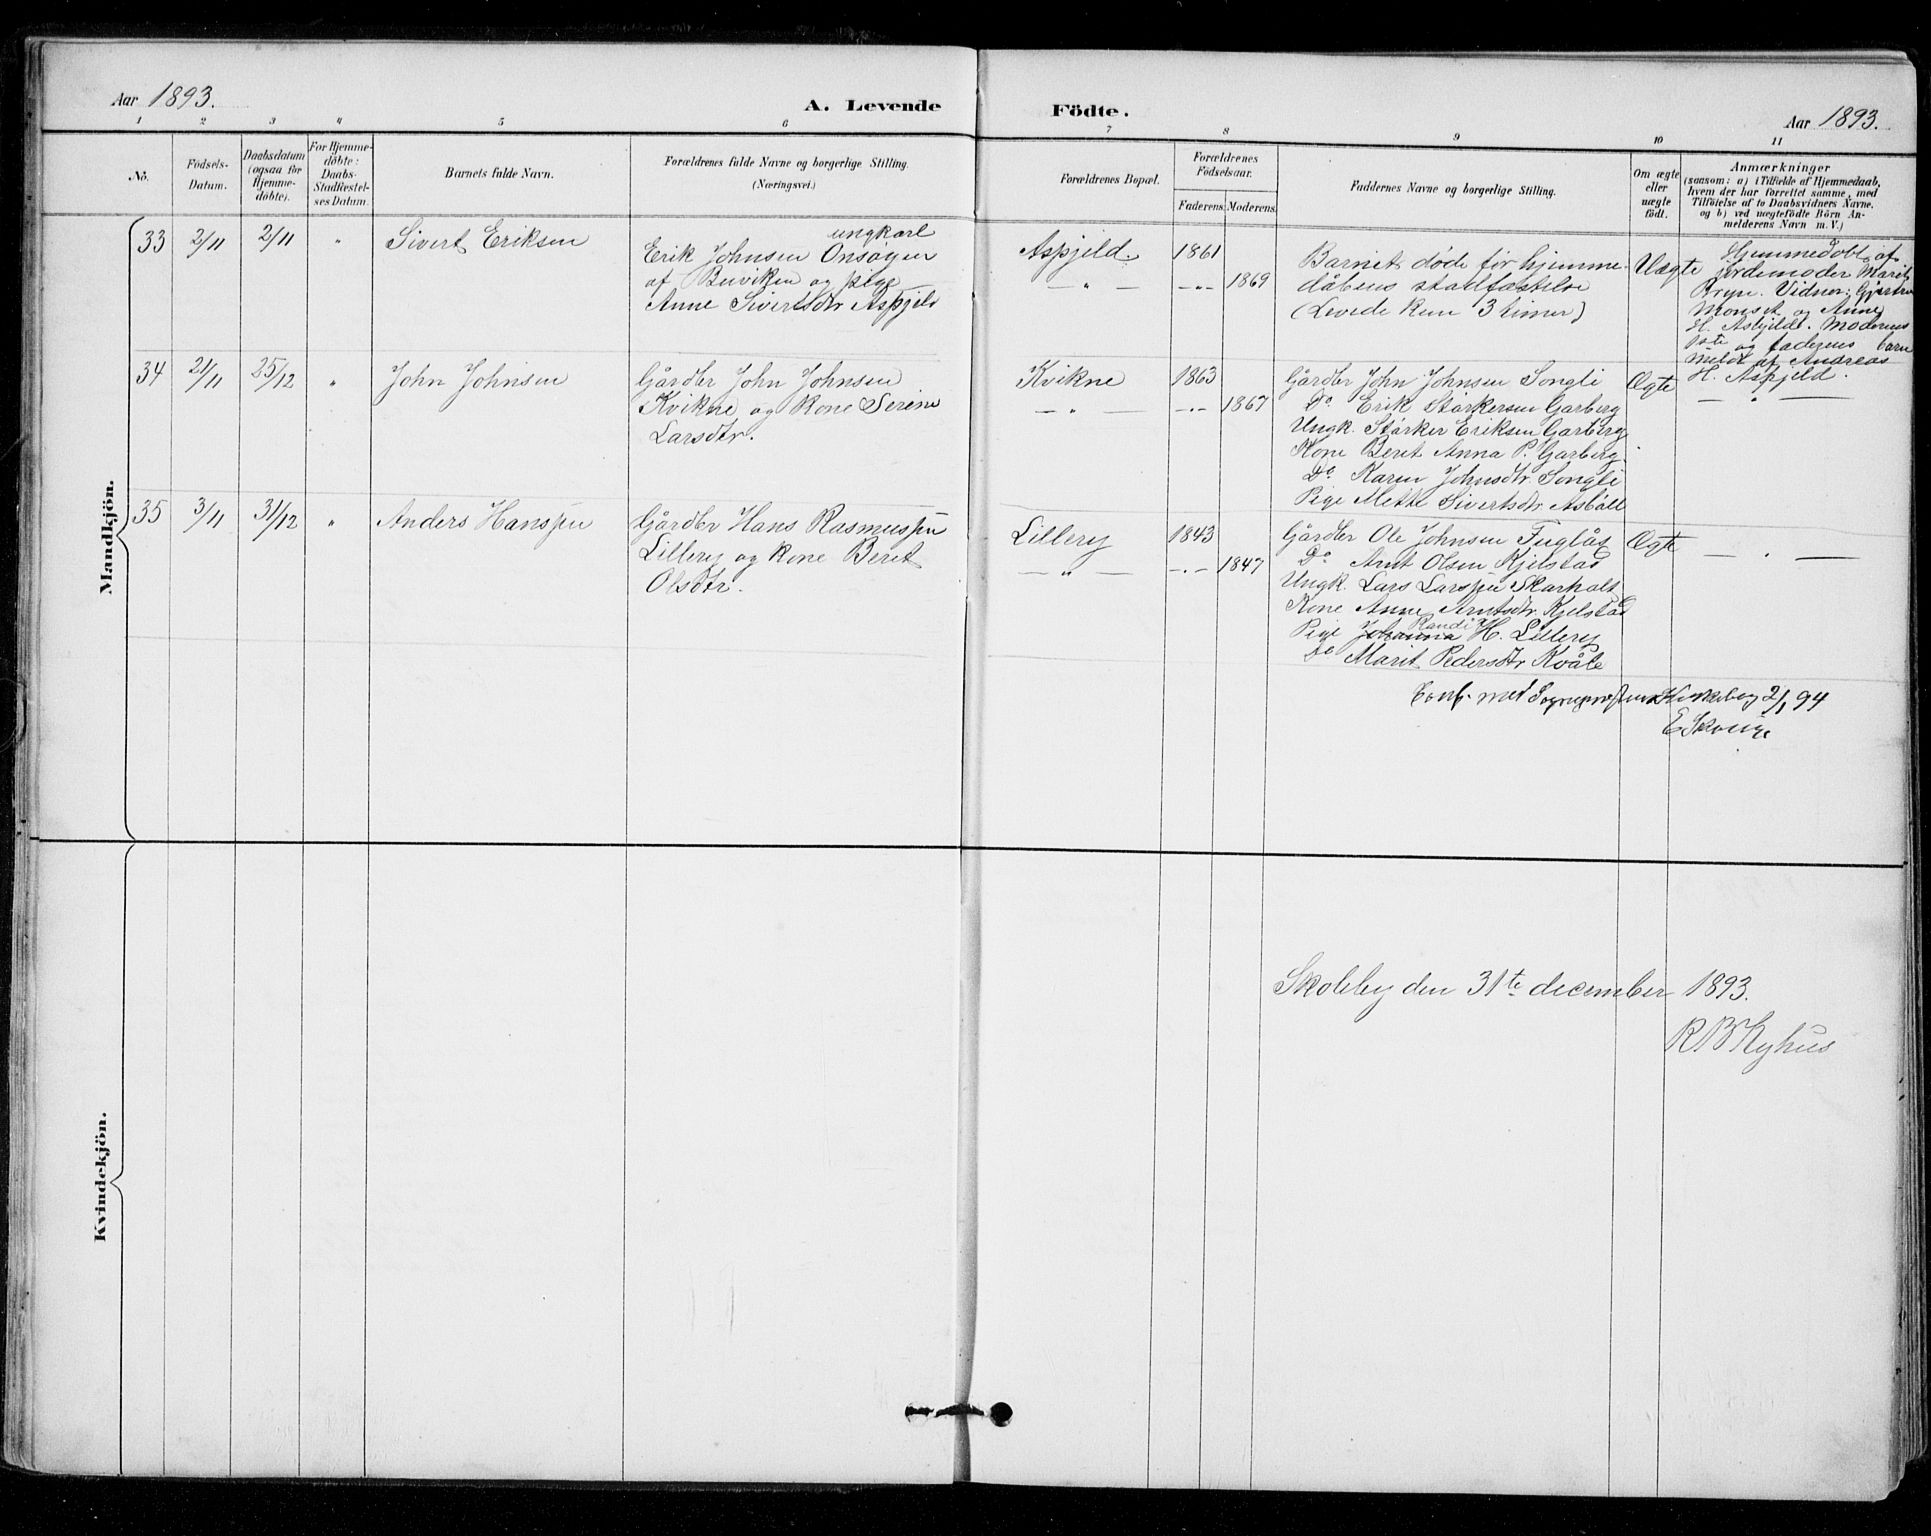 Aar 1893.
A. Levende
Födte.
Aar 1893.
1 2 3 4 5 6 7 8 9 10 11
No.
Födsels-
Datum.
Daabsdatum
(ogsaa for
Hjemme-
döbte).
For Hjemme-
döbte:
Daabs-
Stadfestel-
ses Datum.
Barnets fulde Navn.
Forældrenes fulde Navne og borgerlige Stilling.
(Næringsvei.)
Forældrenes Bopæl.
Forældrenes
Födselsaar.
Faderens. Moderens.
Faddernes Navne og borgerlige Stilling.
Om ægte
eller
uægte
födt.
Anmærkninger
(saasom: a) i Tilfælde af Hjemmedaab,
hvem der har forrettet samme, med
Tilföielse af to Daabsvidners Navne,
og b) ved uægtefödte Börn An-
melderens Navn m. V.)
Mandkjön.
33 2/11 2/11 " Sivert Eriksen
ungkarl
Erik Johnsen Onsøyen
af Buviken og pige
Anne Sivertsdtr Aspjeld
Aspjeld.
— " —
1861
-"- 1869
Barnet døde før hjemme-
dåbens stadfæstelse
(Levede kun 3 timer)
Uægte
Hjemmedøbt af
jordemoder Marit
Bryn. Vidner: Gjertru
Monset og Anne
H. Aspjeld. Moderens
1ste og faderens barn
meldt af Andreas
H. Aspjeld.
34 21/11 25/12 " John Johnsen
Gårdbr John Johnsen
Kvikne og Kone Serine
Larsdtr.
Kvikne
— " —
1863
-"- 1867
Gårdbr John Johnsen Songli
Do Erik Størkersen Garberg
Ungk. Størker Eriksen Garberg
Kone Beret Anna P. Garberg.
Do Karen Johnsdtr Songli
Pige Mette Sivertsdtr Asbøll
Ægte
— " —
35 3/11 31/12 " Anders Hanssen
Gårdbr Hans Rasmussen
Lillery og Kone Beret
Olsdtr.
Lillery
— " —
1843
-"- 1847
Gårdbr Ole Johnsen Fuglås
Do Arnt Olsen Kjelstad
Ungk. Lars Larssen Skarholt
Kone Anne Arntsdtr. Kjelstad
Randi
Pige Johanna H. Lillery
Do Marit Pedersdtr Kvåle
Ægte
— " —
Conf. med 2/1 94
E Skouge
Kvindekjön.
Skoleby den 31te december 1893.
R B Ryhus